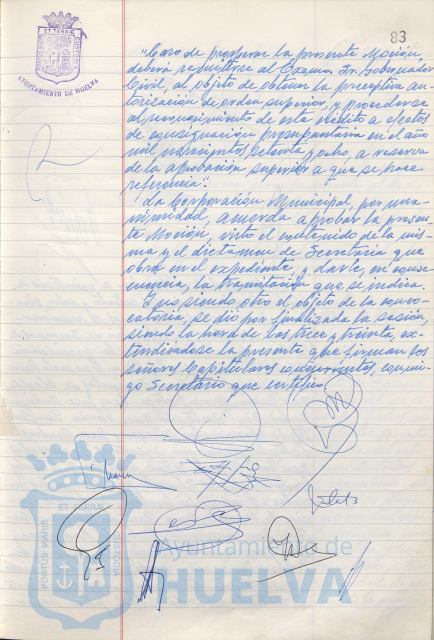 83
AYUNTAMIENTO DE HUELVA
"Caso de prosperar la presente Moción,
deberá remitirse al Excmo. Sr. Gobernador
Civil, al objeto de obtener la preceptiva au-
torización de orden superior, y procederse
al reconocimiento de este crédito a efectos
de consignación presupuestaria en el año
mil novecientos setenta y ocho, a reserva
de la aprobación superior a que se hace
referencia".
La Corporación Municipal, por una-
nimidad, acuerda aprobar la presen-
te Moción, visto el contenido de la mis-
ma y el dictamen de Secretaría que
obra en el expediente, y darle, en conse-
cuencia, la tramitación que se indica.
Y no siendo otro el objeto de la convo-
catoria, se dio por finalizada la sesión,
siendo la hora de las trece y treinta, ex-
tendiéndose la presente que firman los
señores Capitulares concurrentes, conmi-
go Secretario que certifico.
ET TERRÆ
PORTUS MARIS
Ayuntamiento de
HUELVA